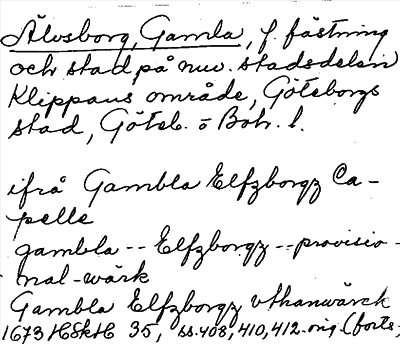 Älvsborg, Gamla, f. fästning
och stad på nuv. stadsdelen
Klippans område, Göteborgs
stad, Göteb. o Boh. l.
ifrå Gambla Elfzborgz Ca-
pelle
gambla -- Elfzborgz -- provisio-
nal-wärk
Gambla Elfzborgz vthanwärck
1673 HSkH 35, ss. 408, 410, 412. orig. (forts.